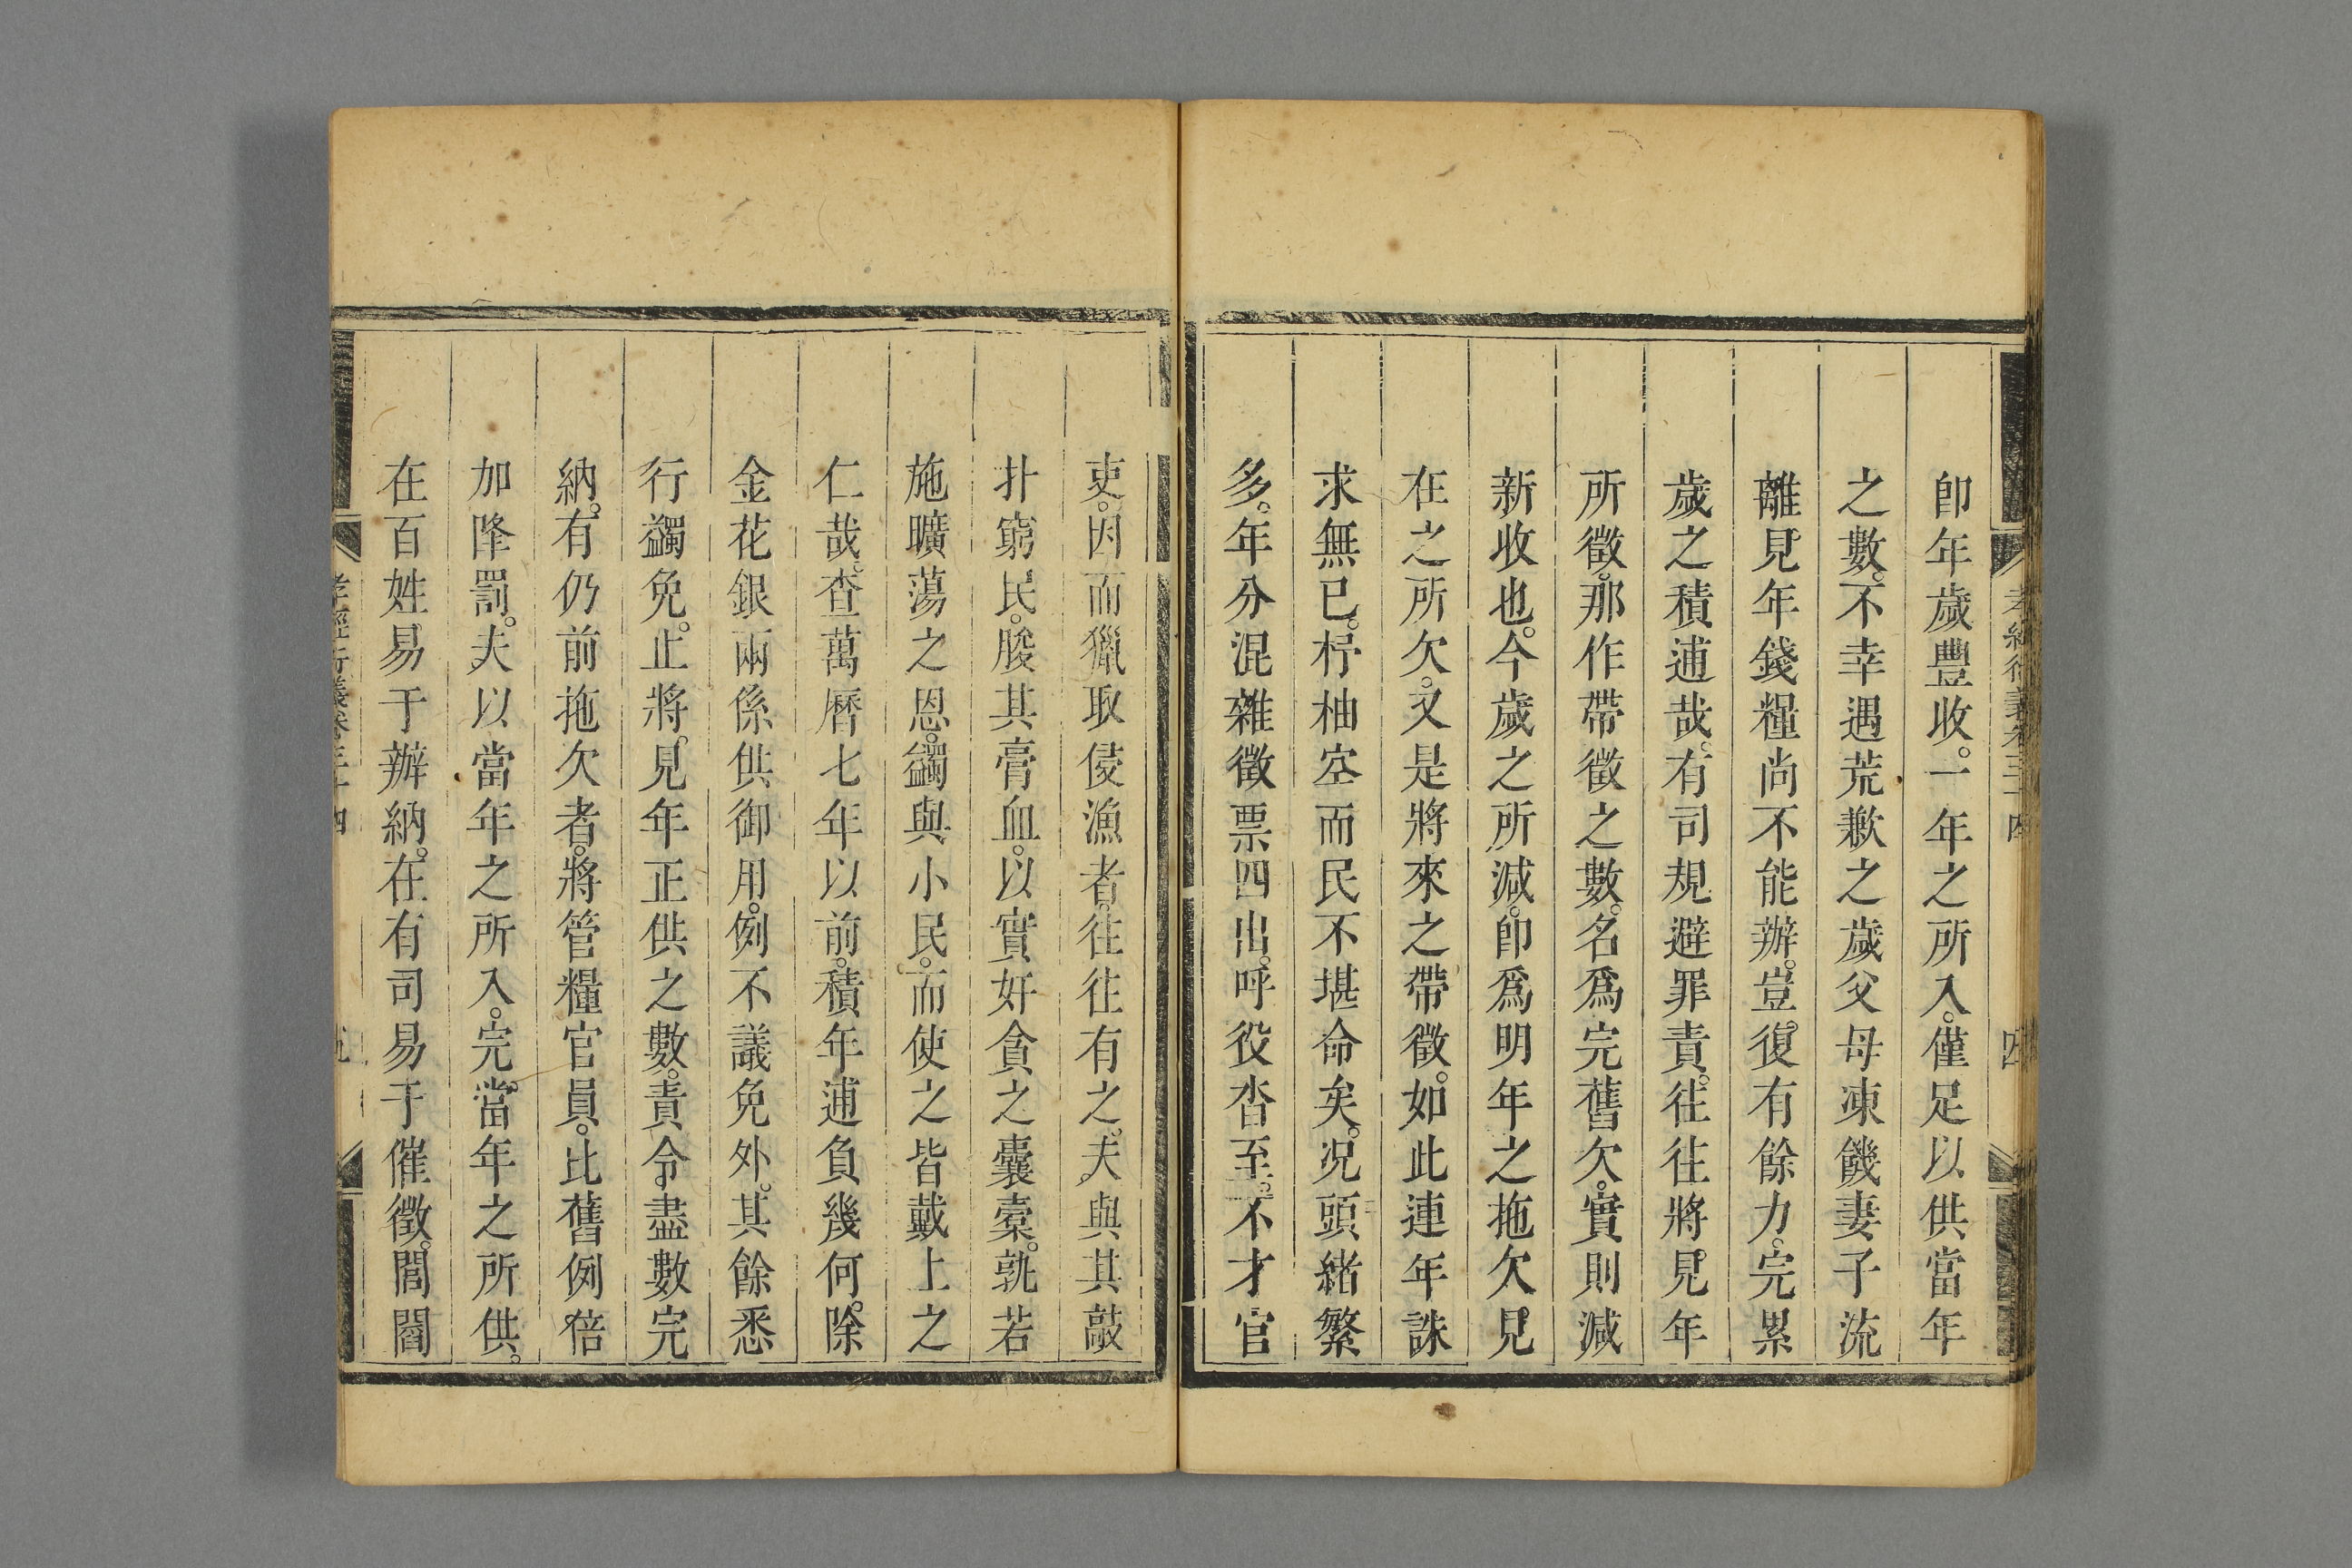 卽年歲豐收。一年之所入。僅足以供當年
之數。不幸遇荒歉之歲父母凍饑妻子流
離。見年錢糧尚不能辦。豈復有餘力。完累
歲之積逋哉。有司規避罪責。往往將見年
所徵。那作帶徵之數。名爲完舊欠。實則減
新收也。今歲之所減。卽爲明年之拖欠。見
在之所欠。又是將來之帶徵。如此連年誅
求無已。杼柚空而民不堪命矣。況頭緒繁
多。年分混雜徵票四出。呼役沓至。不才官
吏。因而獵取侵漁者。往往有之。夫與其敲
扑窮民。朘其膏血。以實奸貪之囊橐。孰若
施曠蕩之恩。蠲與小民。而使之皆戴上之
仁哉。查萬曆七年以前。積年逋負幾何。除
金花銀兩係供御用。例不議免外。其餘悉
行蠲免。止將見年正供之數。責令盡數完
納。有仍前拖欠者。將管糧官員。比舊例倍
加降罰。夫以當年之所入。完當年之所供。
在百姓易于辦納。在有司易于催徵。閭閻
孝經衍義卷三十四